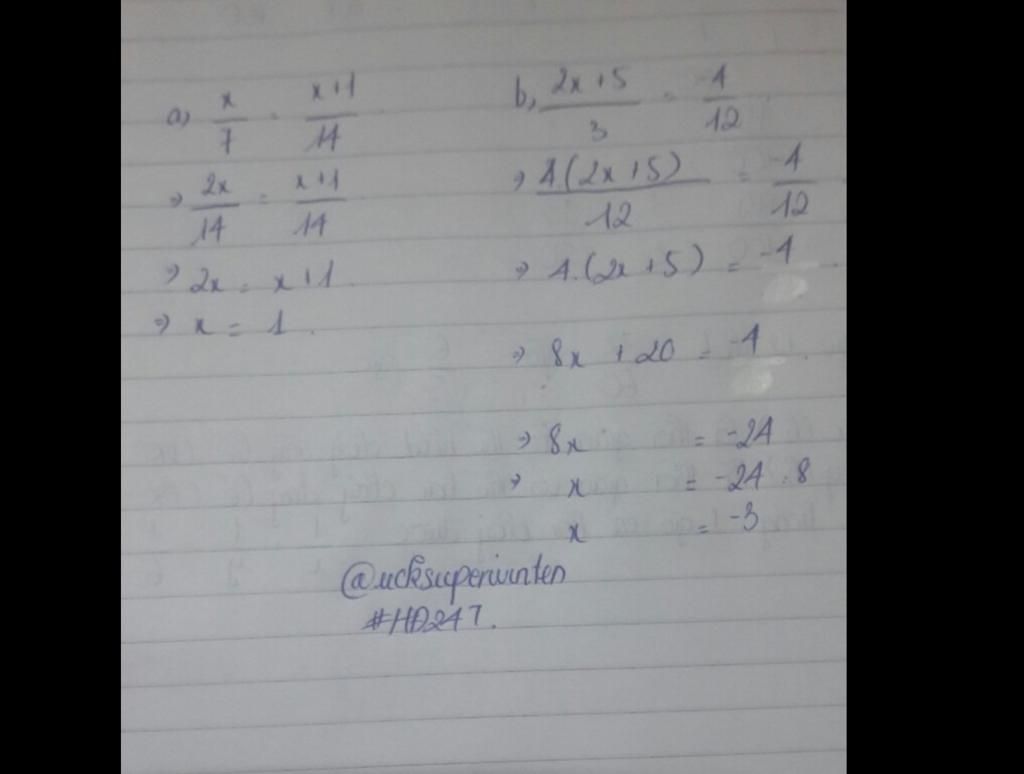 a, x/7 = x+1/14
⇒ 2x/14 = x+1/14
⇒ 2x = x+1.
⇒ x = 1.
b, 2x+5/3 = -4/12
⇒ 4.(2x+5)/12 = -4/12
⇒ 4.(2x+5) = -4
⇒ 8x + 20 = -4
⇒ 8x = -24
⇒ x = -24 : 8
x = -3
@ucksuperwinten
#HĐ247.